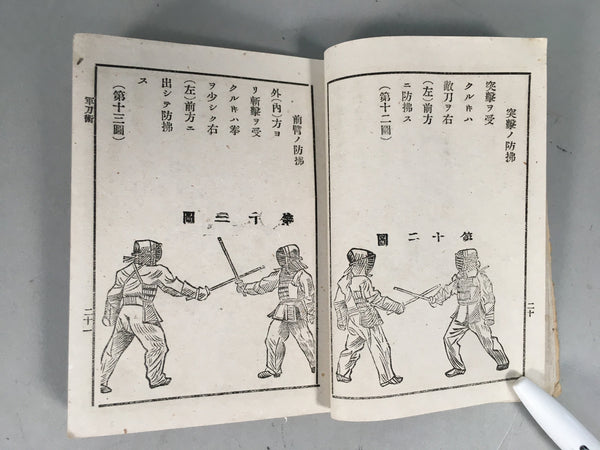 突擊ノ防拂
突擊ヲ受
クルキハ
敵刀ヲ右
(左)前方
ニ防拂ス
(第十二圖)
第十二圖
二十
前臂ノ防拂
外(內)方ヨ
リ斬擊ヲ受
クルキハ拳
ヲ少シク右
(左)前方ニ
出シテ防拂
ス
(第十三圖)
第十三圖
軍刀術
二十一